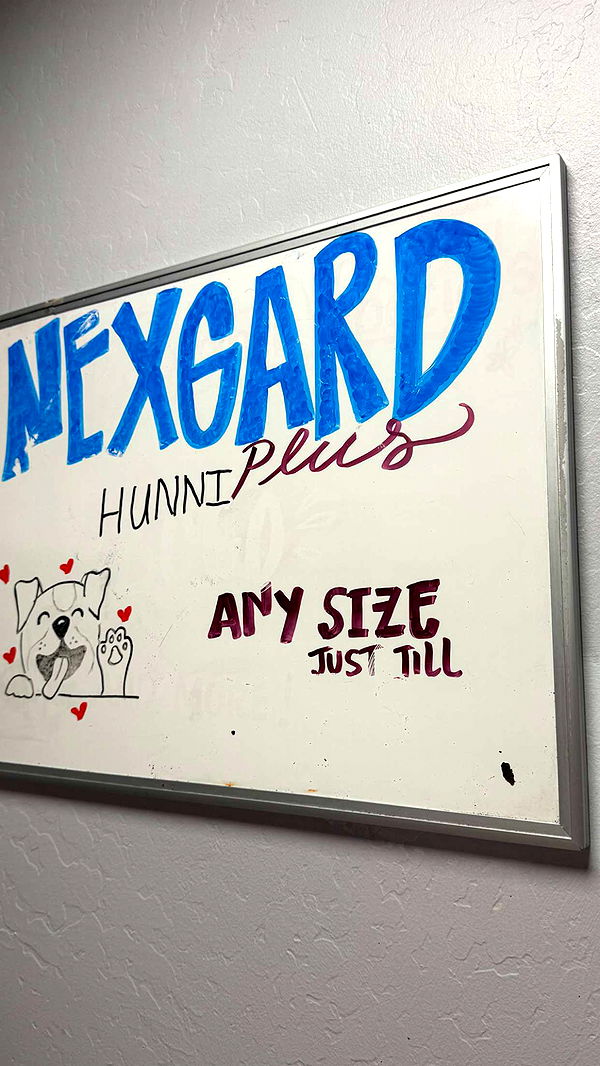 NEXGARD
Plus
HUNNI
ANY SIZE
JUST TILL